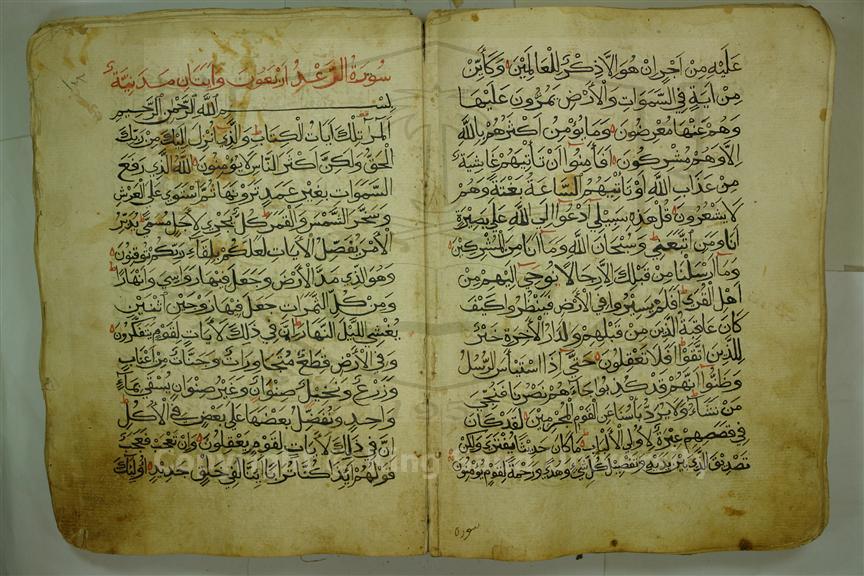 عليه من اجر ان هو الا ذكر للعالمين وكاين
من اية في السموات والارض يمرون عليها
وهم عنها معرضون وما يؤمن اكثرهم بالله
الا وهم مشركون افأمنوا ان تأتيهم غاشية
من عذاب الله او تأتيهم الساعة بغتة وهم
لا يشعرون قل هذه سبيلي ادعوا الى الله على بصيرة
انا ومن اتبعني وسبحان الله وما انا من المشركين
وما ارسلنا من قبلك الا رجالا يوحى اليهم من
اهل القرى افلم يسيروا في الارض فينظروا كيف
كان عاقبة الذين من قبلهم ولدار الاخرة خير
للذين اتقوا افلا تعقلون حتى اذا استيأس الرسل
وظنوا انهم قد كذبوا جاءهم نصرنا فنجي
من نشاء ولا يرد بأسنا عن القوم المجرمين لقد كان
في قصصهم عبرة لاولي الالباب ما كان حديثا يفترى ولكن
تصديق الذي بين يديه وتفصيل كل شيء وهدى ورحمة لقوم يؤمنون
سورة
سورة الرعد اربعون وايتان مدنية
بسم الله الرحمن الرحيم
المر تلك ايات الكتاب والذي انزل اليك من ربك
الحق ولكن اكثر الناس لا يؤمنون الله الذي رفع
السموات بغير عمد ترونها ثم استوى على العرش
وسخر الشمس والقمر كل يجري لاجل مسمى يدبر
الامر يفصل الايات لعلكم بلقاء ربكم توقنون
وهو الذي مد الارض وجعل فيها رواسي وانهارا
ومن كل الثمرات جعل فيها زوجين اثنين
يغشي الليل النهار ان في ذلك لايات لقوم يتفكرون
وفي الارض قطع متجاورات وجنات من اعناب
وزرع ونخيل صنوان وغير صنوان يسقى بماء
واحد ونفضل بعضها على بعض في الاكل
ان في ذلك لايات لقوم يعقلون وان تعجب فعجب
قولهم ائذا كنا ترابا ائنا لفي خلق جديد اولئك